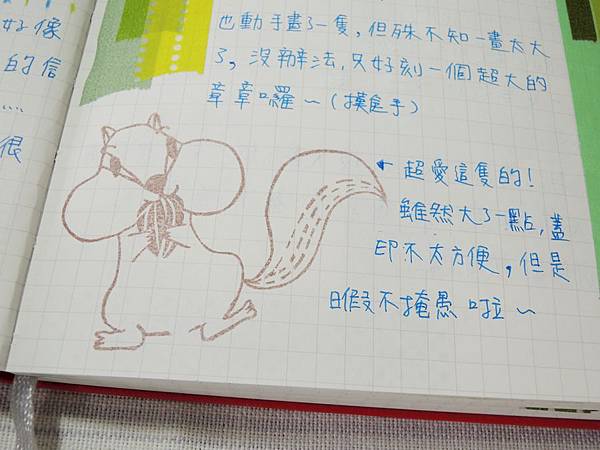 好像
的信
⋯⋯
很
也動手畫了一隻，但殊不知一畫太大
了，沒辦法，只好刻一個超大的
章章囉～（摸
手）
←超愛這隻的！
雖然大了一點，蓋
印不太方便，但是
瑕不掩愚啦～